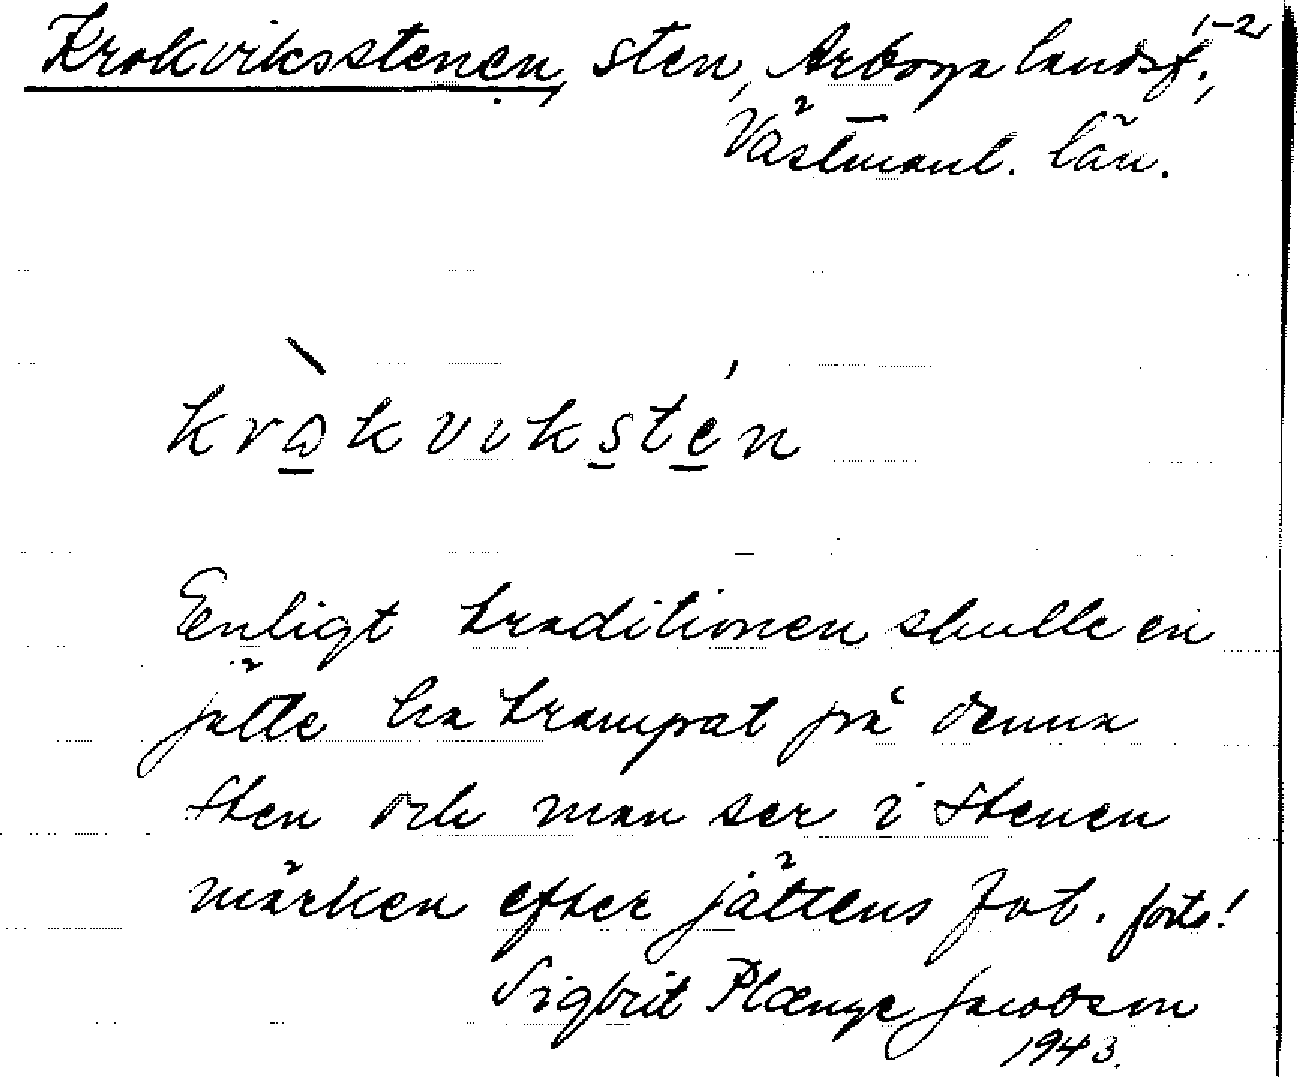 1-2,
Krokviksstenen, sten, Arboga landsf.,
Västmanl. län.
kròkvikstén
Enligt traditionen skulle en
jätte ha trampat på denna
sten och man ser i stenen
märken efter jättens fot. forts!
Sigbrit Plænge Jacobson
1943.